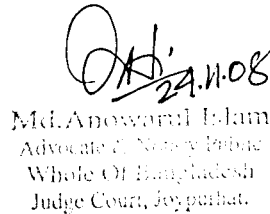 24.11.08
Md. Anowarul Islam
Advocate & Notary Public
Whole Of Bangladesh
Judge Court, Joypurhat.